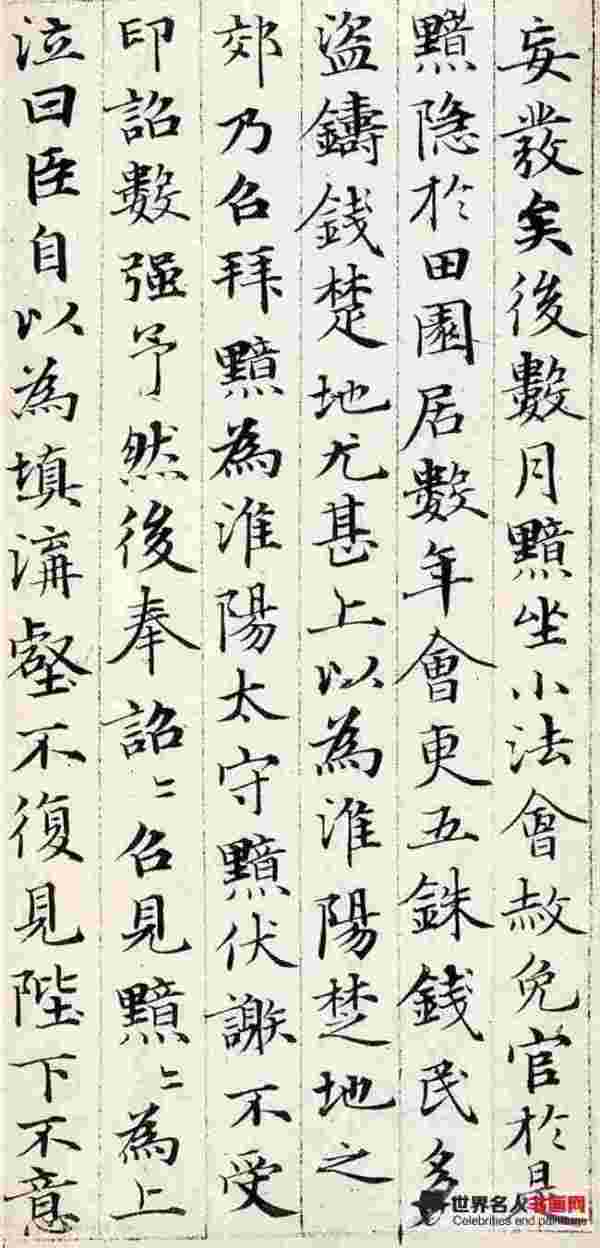 妄發矣後數月黯坐小法會赦免官於是
黯隱於田園居數年會更五銖錢民多
盜鑄錢楚地尤甚上以為淮陽楚地之
郊乃召拜黯為淮陽太守黯伏謝不受
印詔數強予然後奉詔〻召見黯〻為上
泣曰臣自以為填溝壑不復見陛下不意
世界名人书画网
Celebrities end painting